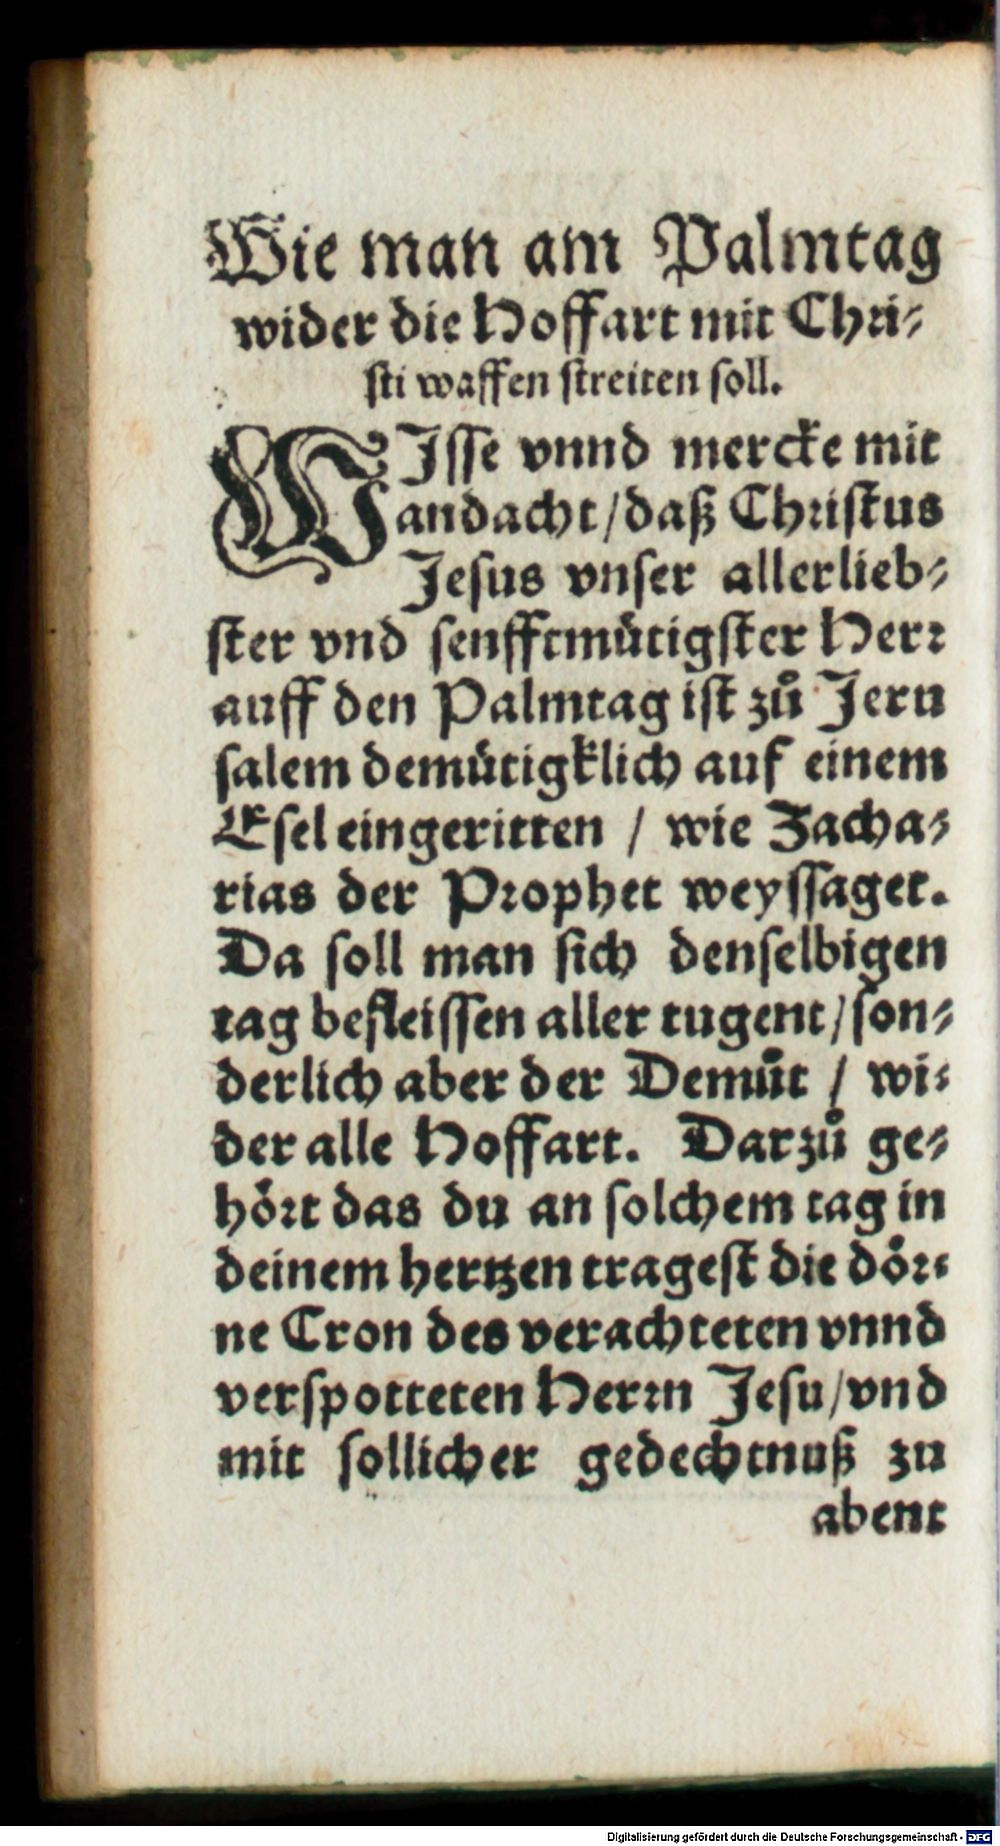 Wie man am Palmtag
wider die Hoffart mit Chri⸗
sti waffen streiten soll.
WJsse vnnd mercke mit
andacht / daß Christus
Jesus vnser allerlieb⸗
ster vnd senfftmütigster Herr
auff den Palmtag ist zů Jeru
salem demütigklich auf einem
Esel eingeritten / wie Zacha⸗
rias der Prophet weyssaget.
Da soll man sich denselbigen
tag befleissen aller tugent / son⸗
derlich aber der Demůt / wi⸗
der alle Hoffart. Darzů ge⸗
hört das du an solchem tag in
deinem hertzen tragest die dör⸗
ne Cron des verachteten vnnd
verspotteten Herrn Jesu / vnd
mit sollicher gedechtnuß zu
abent
Digitalisierung gefördert durch die Deutsche Forschungsgemeinschaft - DFG